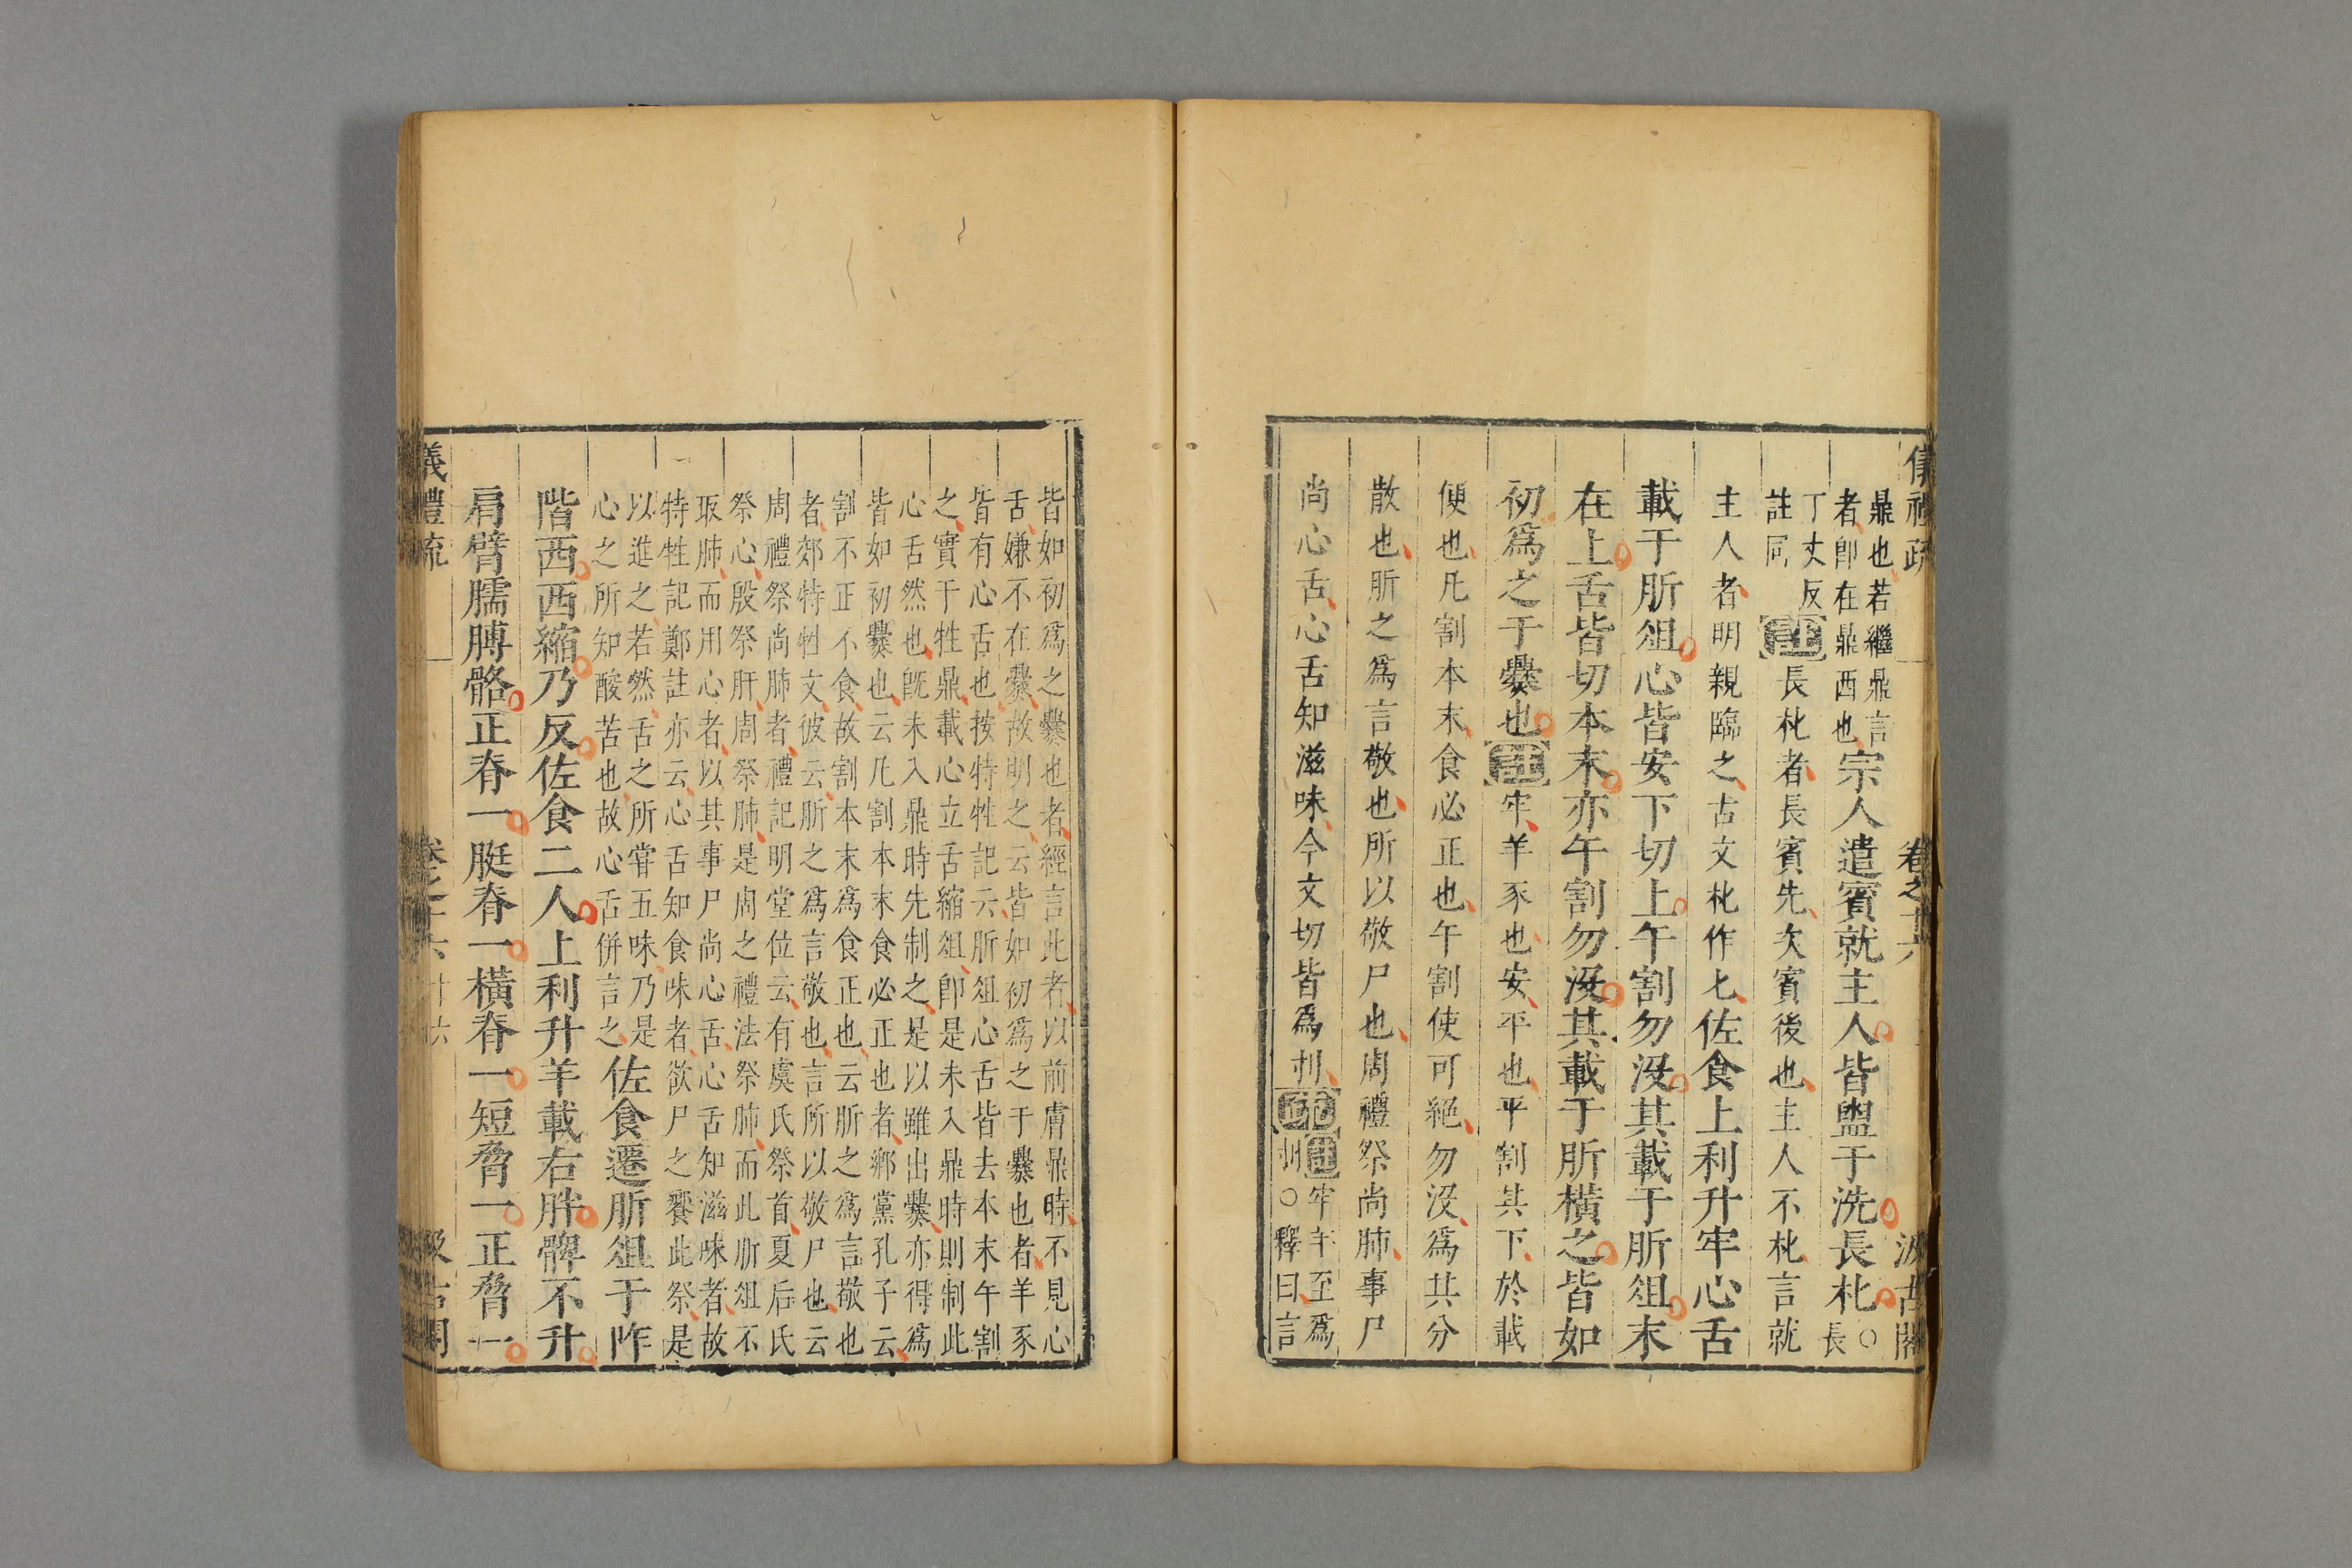 儀禮疏 卷之十六 汲古閣
鼎也若繼鼎言
者卽在鼎西也宗人遣賓就主人皆盥于洗長朼○長
丁丈反
註同註長朼者長賓先次賓後也主人不朼言就
主人者明親臨之古文朼作匕佐食上利升牢心舌
載于肵俎心皆安下切上午割勿沒其載于肵俎末
在上舌皆切本末亦午割勿沒其載于肵橫之皆如
初爲之于爨也註牢羊豕也安平也平割其下於載
便也凡割本末食必正也午割使可絕勿沒爲其分
散也肵之爲言敬也所以敬尸也周禮祭尚肺事尸
尚心舌心舌知滋味今文切皆爲刌疏註牢午至爲
刌○釋曰言
皆如初爲之爨也者經言此者以前膚鼎時不見心
舌嫌不在爨故明之云皆如初爲之于爨也者羊豕
皆有心舌也按特牲記云肵俎心舌皆去本末午割
之實于牲鼎載心立舌縮俎卽是未入鼎時則制此
心舌然也旣未入鼎時先制之是以雖出爨亦得爲
皆如初爨也云凡割本末食必正也者鄉黨孔子云
割不正不食故割本末爲食正也云肵之爲言敬也
者郊特牲文彼云肵之爲言敬也言所以敬尸也云
周禮祭尚肺者禮記明堂位云有虞氏祭首夏后氏
祭心殷祭肝周祭肺是周之禮法祭肺而此肵俎不
取肺而用心者以其事尸尚心舌心舌知滋味者故
特牲記鄭註亦云心舌知食味者欲尸之饗此祭是
以進之若然舌之所嘗五味乃是
心之所知酸苦也故心舌併言之佐食遷肵俎于阼
階西西縮乃反佐食二人上利升羊載右胖髀不升
肩臂臑膊骼正脊一脡脊一橫脊一短脅一正脅一
儀禮疏 卷之十六 十六 汲古閣